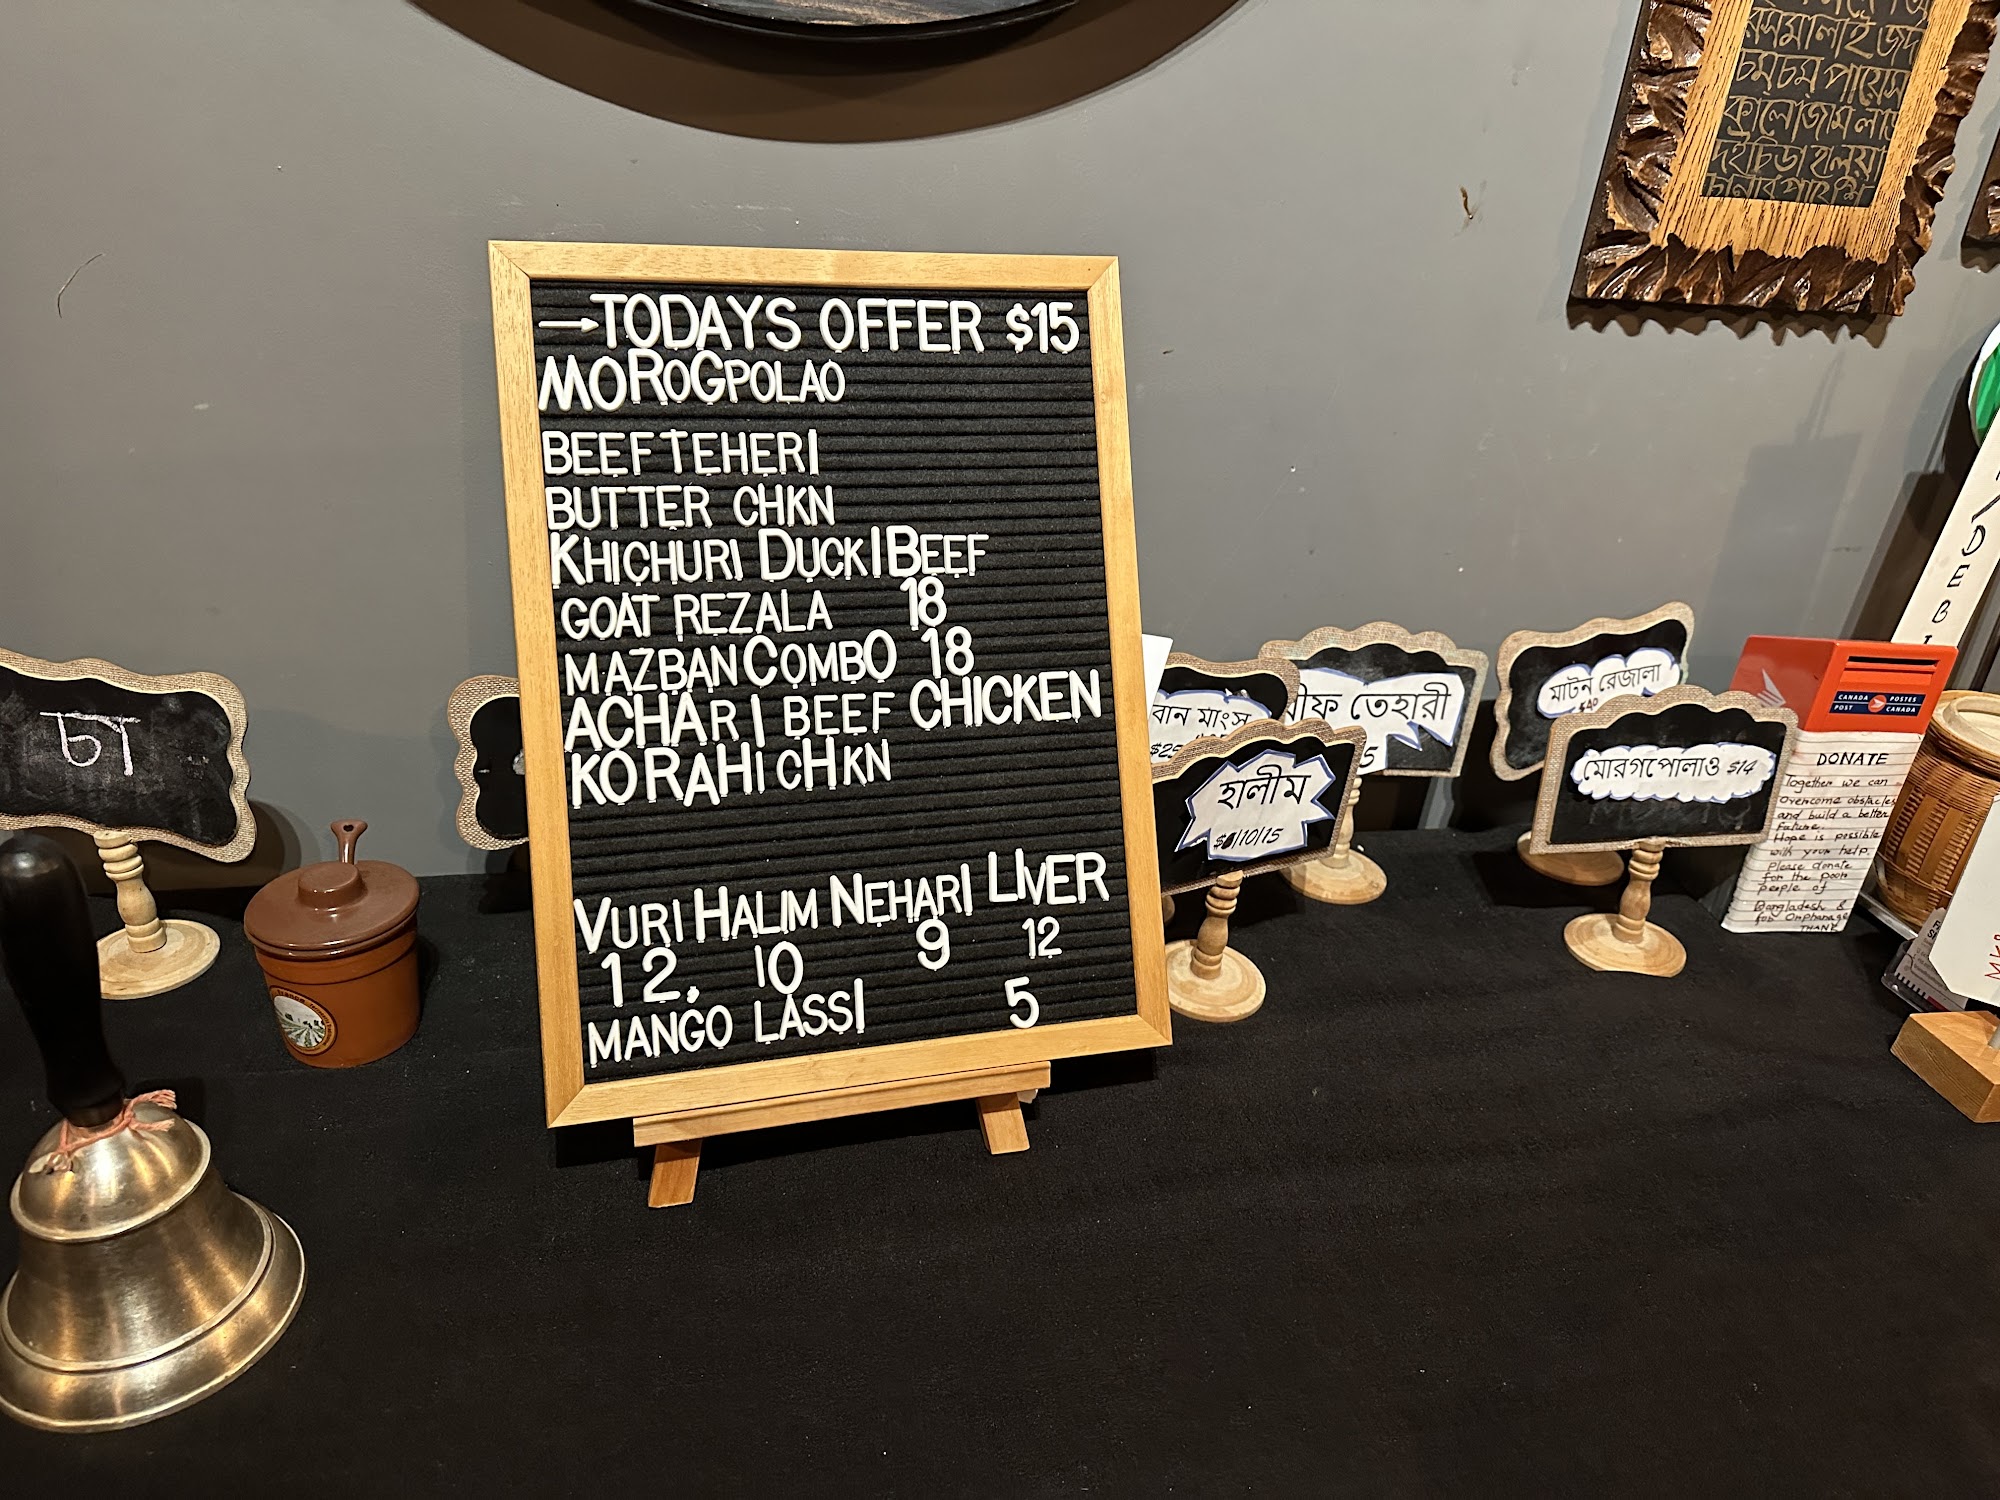 →TODAYS OFFER $15
MOROGPOLAO
BEEFTEHERI
BUTTER CHKN
KHICHURI DUCK|BEEF
GOAT REZALA 18
MAZBANCOMBO 18
ACHARI BEEF CHICKEN
KORAHI CHKN
VURI HALIM NEHARI LIVER
12, 10 9 12
MANGO LASSI 5
চা
রসমালাই
চমচম পায়েস
কালোজাম
দই চিড়া হালুয়া
মাংস
$25
তেহারী
5
হালীম
/10/15
মাটন রেজালা
$40
মোরগপোলাও $14
CANADA POST
POSTES CANADA
DONATE
Together we can
overcome obstacles
and build a better
future.
Hope is possible
with your help.
Please donate
for the poor
people of
Bangladesh &
for Orphanage
THANK
DEBI